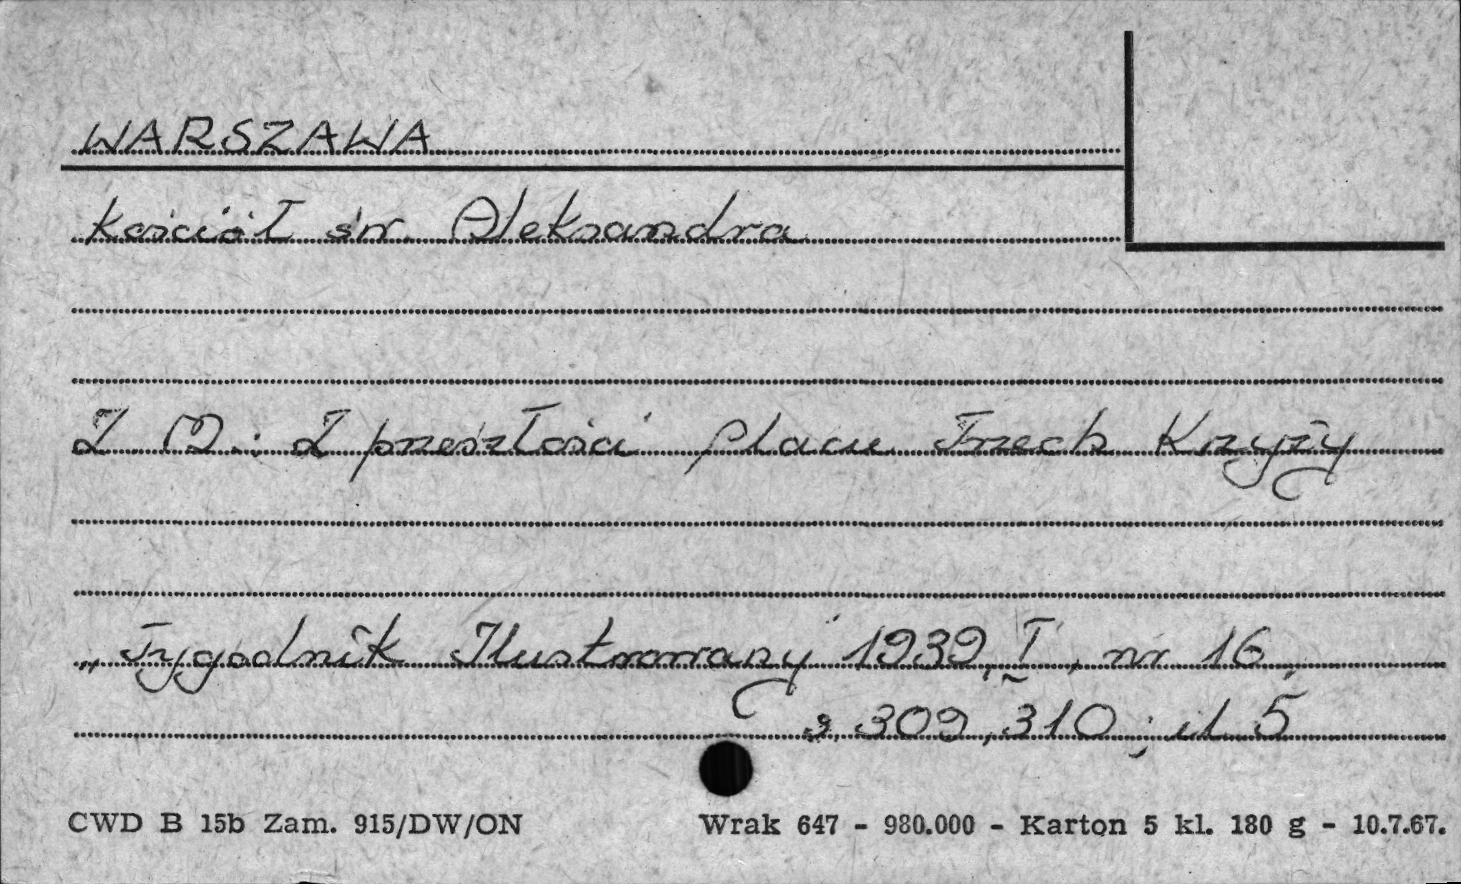 WARSZAWA
Kościół św. Aleksandra
Z M.: Z przeszłości placu Trzech Krzyży
„Tygodnik Ilustrowany" 1939, I, nr 16,
s. 309, 310; il. 5
CWD B 15b Zam. 915/DW/ON Wrak 647 - 980.000 - Karton 5 kl. 180 g - 10.7.67.